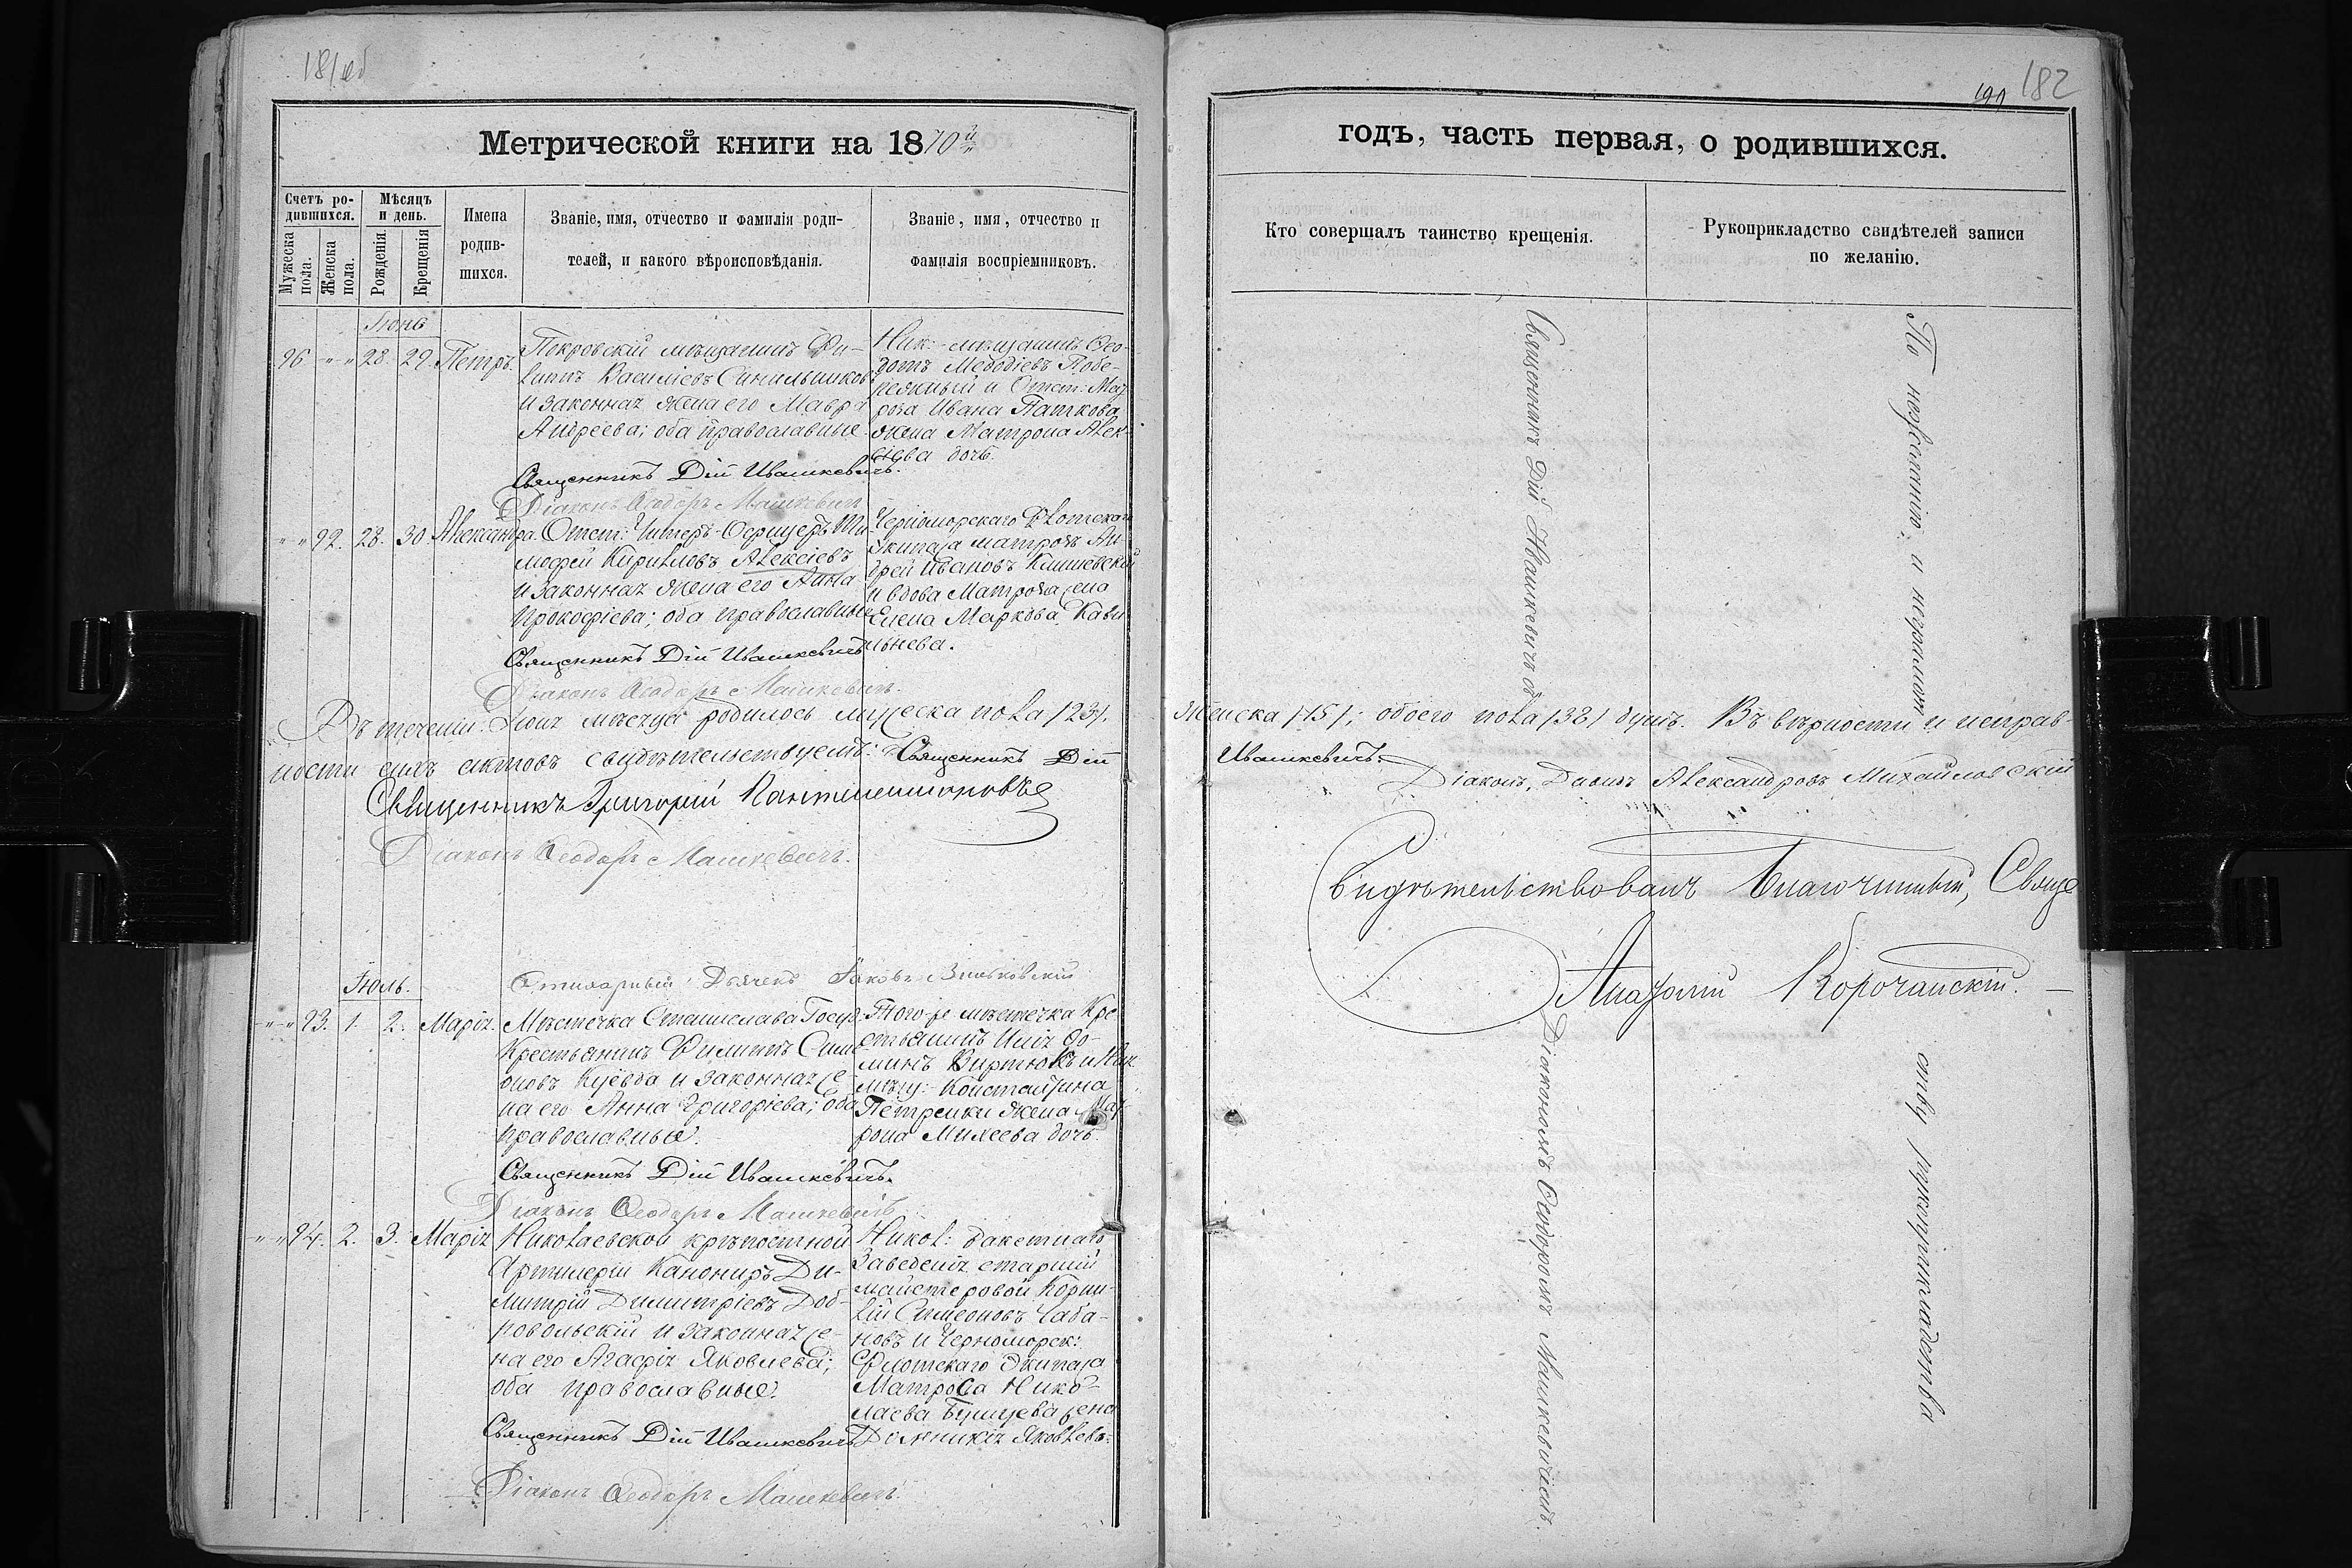 181 об
Метрической книги на 1870й
Счетъ ро-
дившихся.
Мѣсяцъ
и день.
Мужеска пола.
Женска пола.
Рожденія.
Крещенія
Имена
родив-
шихся.
Званіе, имя, отчество и фамилія роди-
телей, и какого вѣроисповѣданія.
Званіе, имя, отчество и
фамилія воспріемниковъ.
Іюнь
96 " " 28. 29. Петръ.
Покровскій мѣщанинъ Фи-
липпъ Василіевъ Синильниковъ
и законная жена его Мавра
Андреева; оба православные.
Священникъ Дій Ивашкевичъ.
Діаконъ Ѳеодоръ Машкевичъ
Ник: мѣщанинъ Ѳео-
дотъ Меѳодіевъ Побе-
режный и Отст: Мат
роза Ивана Паткова
жена Матрона Алек-
сѣева дочь.
" " 92. 28. 30 Александра.
Отст: Унтеръ-Офицеръ Ти
мофей Кириловъ Алексіевъ
и законная жена его Анна
Прокофіева; оба православные
Священникъ Дій Ивашкевичъ
Діаконъ Ѳеодоръ Машкевичъ.
Черноморскаго Флотскаго
Экипажа матрозъ Ан-
дрей Ивановъ
и вдова Матроза жена
Елена Маркова
Въ теченіи Іюня мѣсяца родилось мужеска пола /23/.
ности сихъ актовъ свидѣтельствуемъ: Священникъ Дій
Священникъ Григорій Пантелеимоновъ
Діаконъ Ѳеодоръ Машкевичъ.
Стихарный Дьячекъ Іаковъ
Іюль.
" " 93. 1. 2. Марія.
Мѣстечка Станислава Госуд:
Крестьянинъ Филиппъ Сим
оновъ Куевда и законная же-
на его Анна Григоріева; оба
православные.
Священникъ Дій Ивашкевичъ.
Діаконъ Ѳеодоръ Машкевичъ
Того-же мѣстечка Кре
стьянинъ Илія Ѳо-
минъ Виртюкъ и Ник
мѣщ: Константина
Петренки жена Мат
рона Михеева дочь.
" " 94. 2. 3. Марія
Николаевской крѣпостной
Артилеріи Канониръ Ди-
митрій Димитріевъ Доб-
ровольскій и законная же-
на его Агафія Яковлева;
оба православные.
Священникъ Дій Ивашкевичъ
Діаконъ Ѳеодоръ Машкевичъ.
Никол: ракетнаго
Заведенія старшій
мастеровой Корни-
лій Симеоновъ Чаба-
новъ и Черноморск:
Флотскаго Экипажа
Матроса Нико-
лаева жена
Домникія Яковлева:
190 182
годъ, часть первая, о родившихся.
Кто совершалъ таинство крещенія.
Рукоприкладство свидѣтелей записи
по желанію.
Священникъ Дій Ивашкевичъ съ
Діакономъ Ѳеодоромъ Машкевичемъ.
По незнанію, а неграмот
ству рукоприкладства
Женска /15/; обоего пола /38/ душъ. Въ вѣрности и неправ-
Ивашкевичъ.
Діаконъ, Давидъ Александровъ Михайловскій
Свидѣтельствовалъ Благочинный, Свяще
Анатолій Корочанскій.